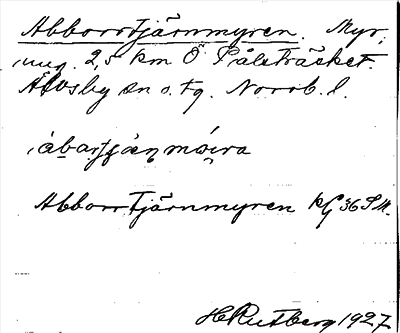 Abborrtjärnmyren. Myr,
ung. 2,5 km Ö Pålsträsket.
Älvsby sn o. tg. Norrb. l.
Abborrtjärnmyren kG 36 S.M.
H Rutberg 1927